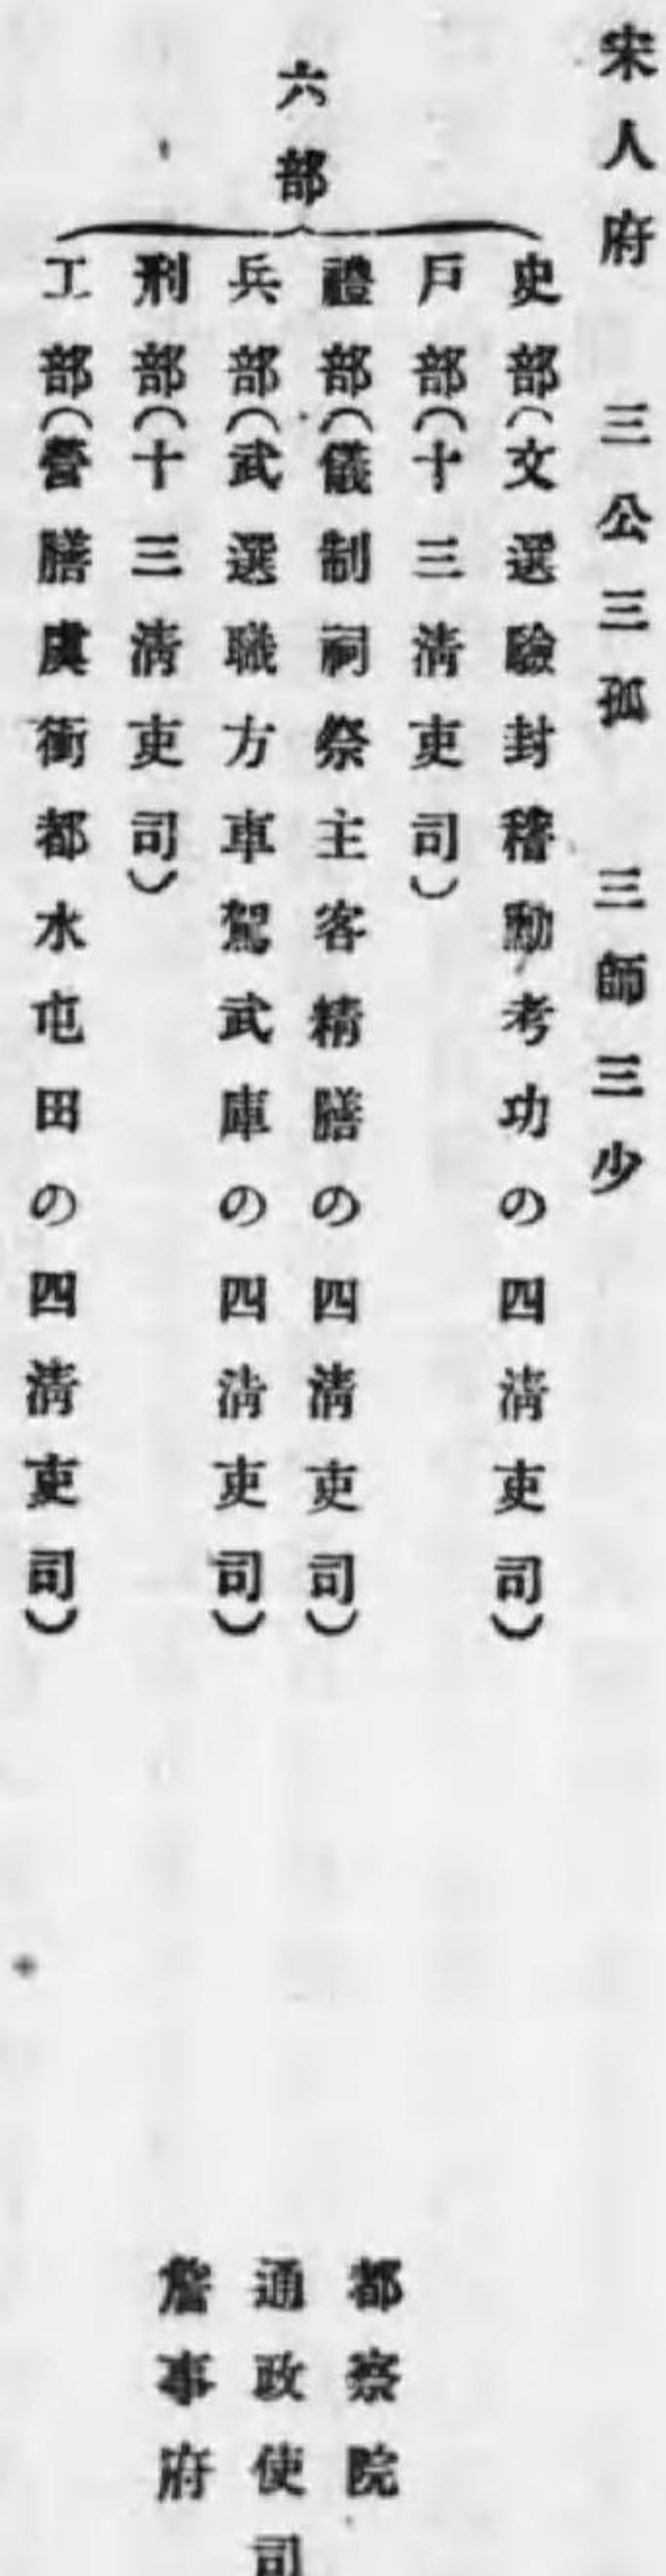 宋人府　三公三孤　三師三少
六部
史部(文選驗封稽勳考功の四淸吏司)
戶部(十三淸吏司)
禮部(儀制祠祭主客精膳の四淸吏司)
兵部(武選職方車駕武庫の四淸吏司)
刑部(十三淸吏司)
工部(營膳虞衝都水屯田の四淸吏司)
都察院
通政使司
詹事府